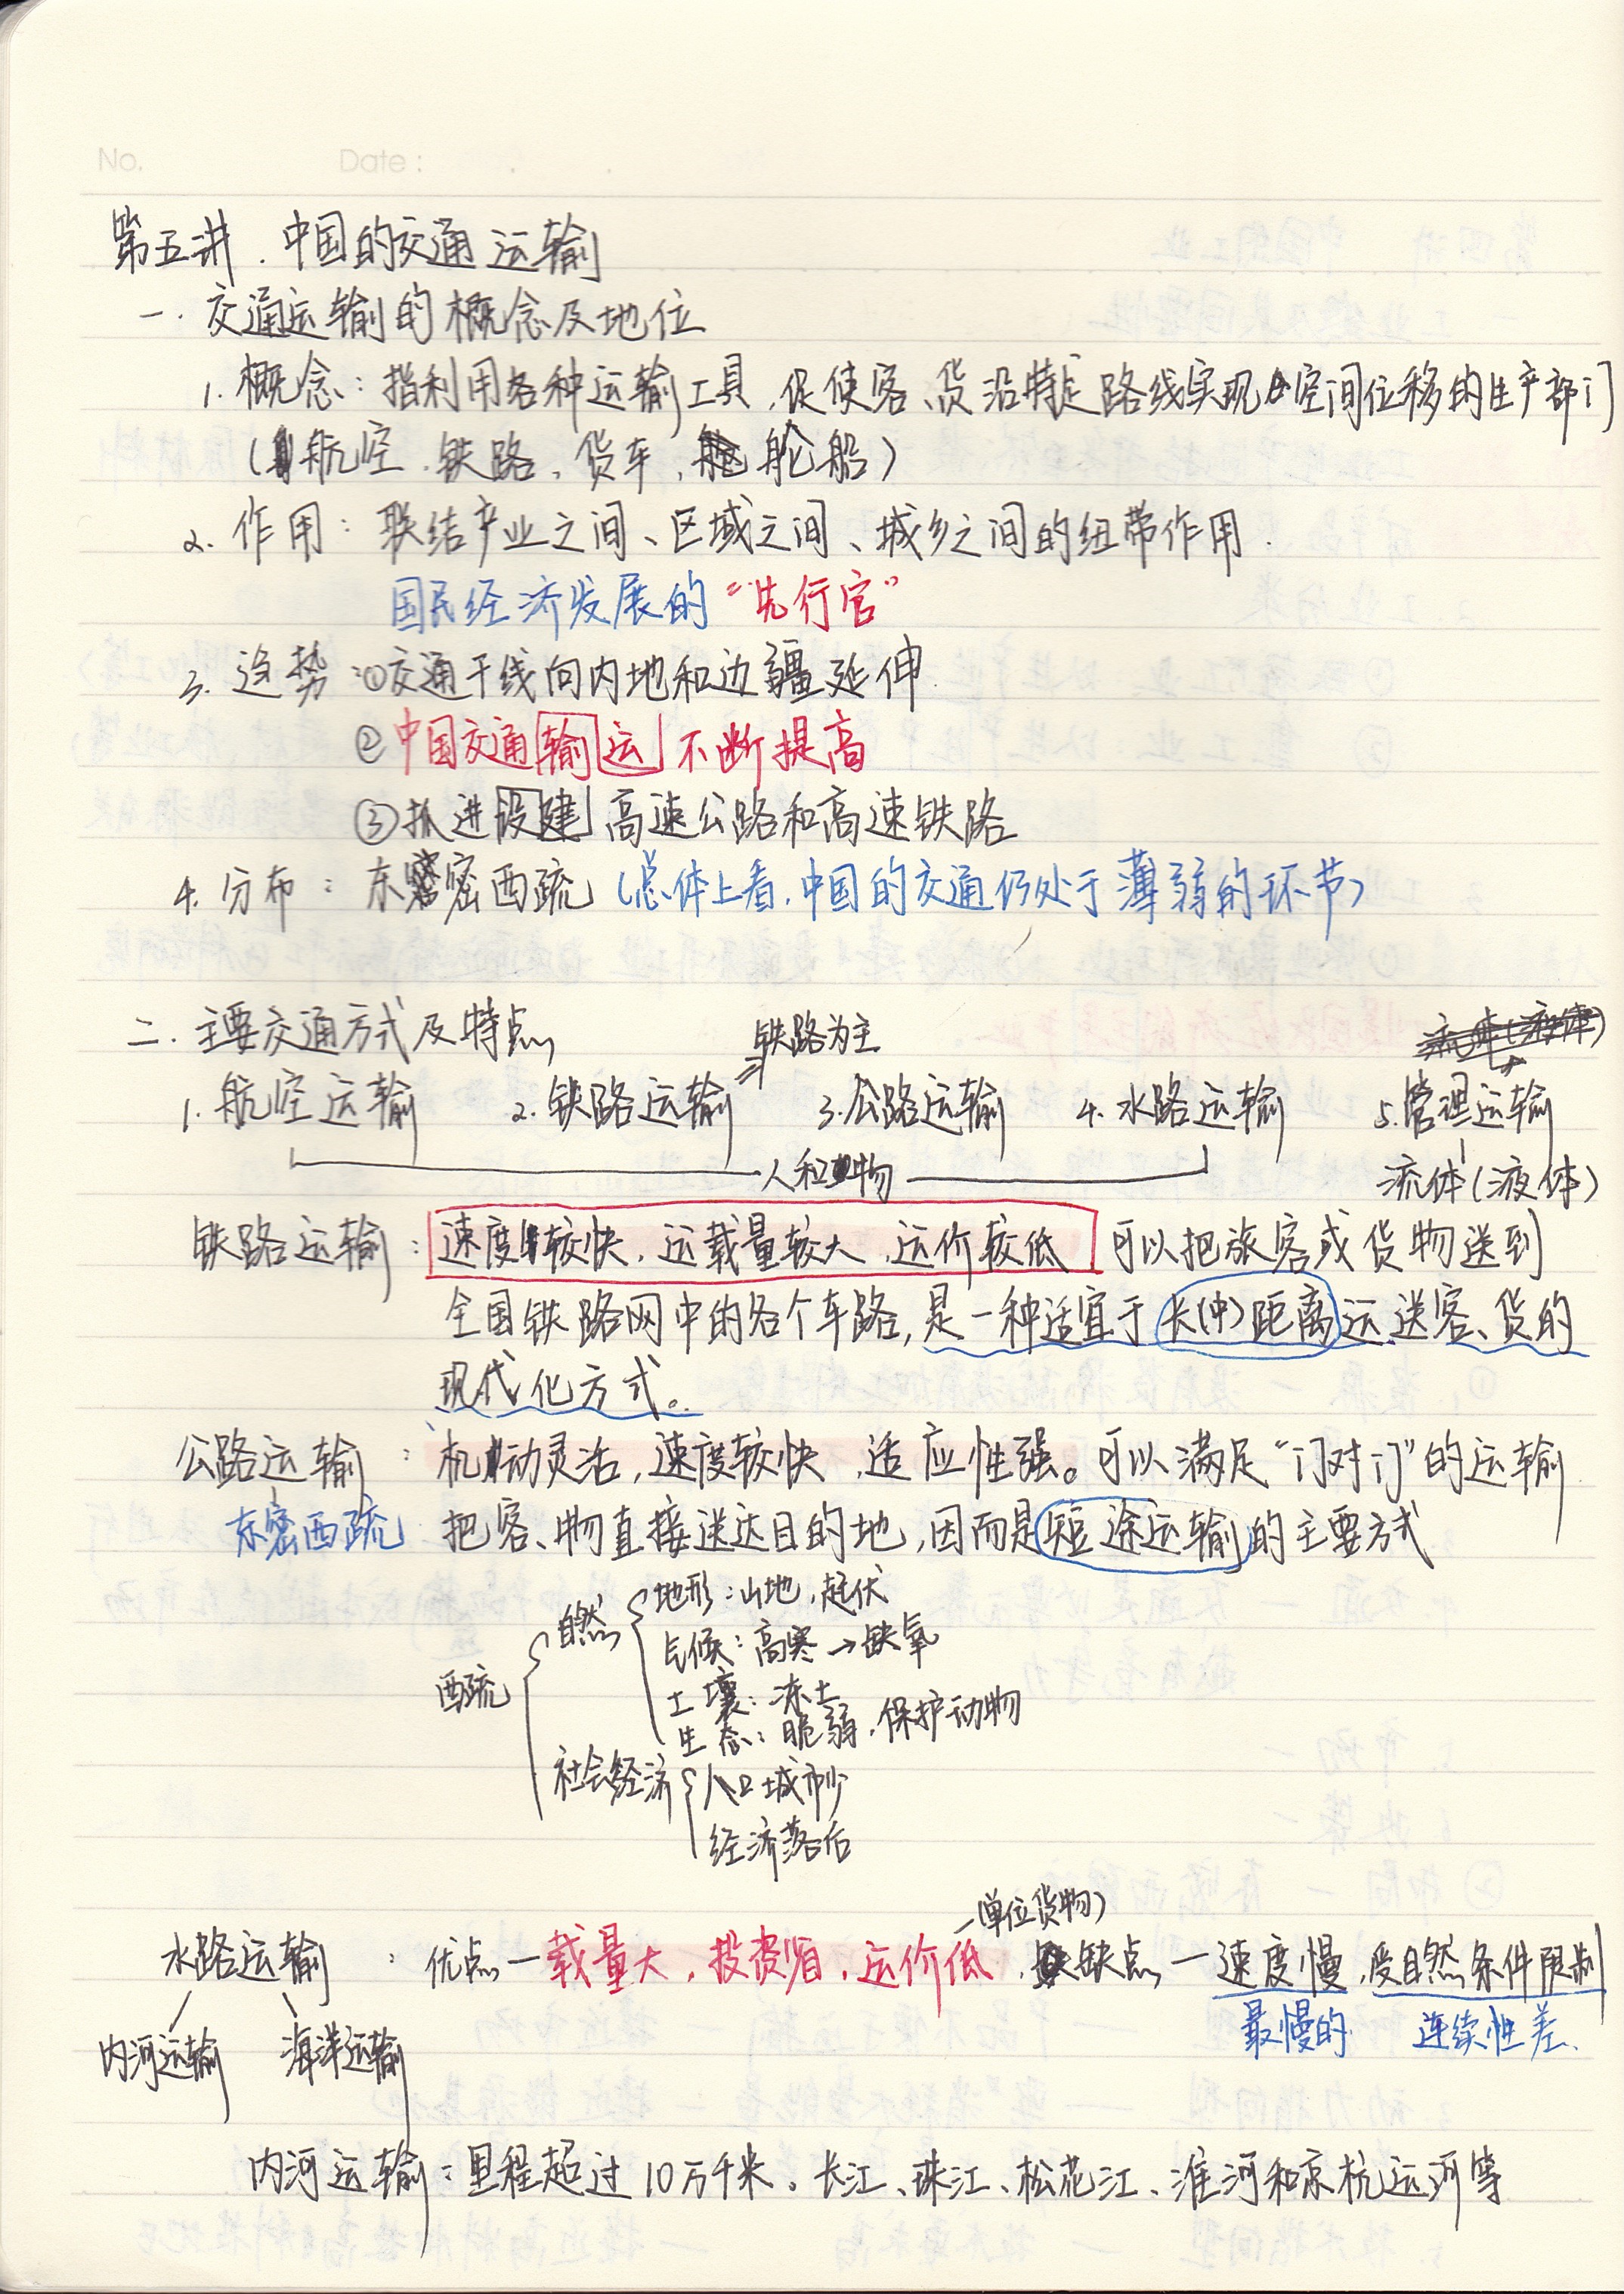 No. Date:
第五讲.中国的交通运输
一.交通运输的概念及地位
1.概念:指利用各种运输工具,促使客、货沿特定路线实现空间位移的生产部门
(航空、铁路、货车、轮船)
2.作用:联结产业之间、区域之间、城乡之间的纽带作用.
国民经济发展的"先行官"
3.趋势:①交通干线向内地和边疆延伸
②中国交通输运不断提高
③抓进设建高速公路和高速铁路
4.分布:东密西疏(总体上看,中国的交通仍处于薄弱的环节)
二.主要交通方式及特点
铁路为主
1.航空运输 2.铁路运输 3.公路运输 4.水路运输 5.管理运输
人和物 流体(液体)
铁路运输:速度较快,运载量较大,运价较低 可以把旅客或货物送到
全国铁路网中的各个车路,是一种适宜于长(中)距离运送客、货的
现代化方式。
公路运输:机动灵活,速度较快,适应性强。可以满足"门对门"的运输
东密西疏 把客、物直接送达目的地,因而是短途运输的主要方式
地形:山地,起伏
自然 气候:高寒→缺氧
西疏 土壤:冻土
生态:脆弱,保护动物
社会经济 人口城市少
经济落后
(单位货物)
水路运输:优点—载量大,投资省,运价低,缺点—速度慢,受自然条件限制
最慢的 连续性差.
内河运输 海洋运输
内河运输:里程超过10万千米。长江、珠江、松花江、淮河和京杭运河等